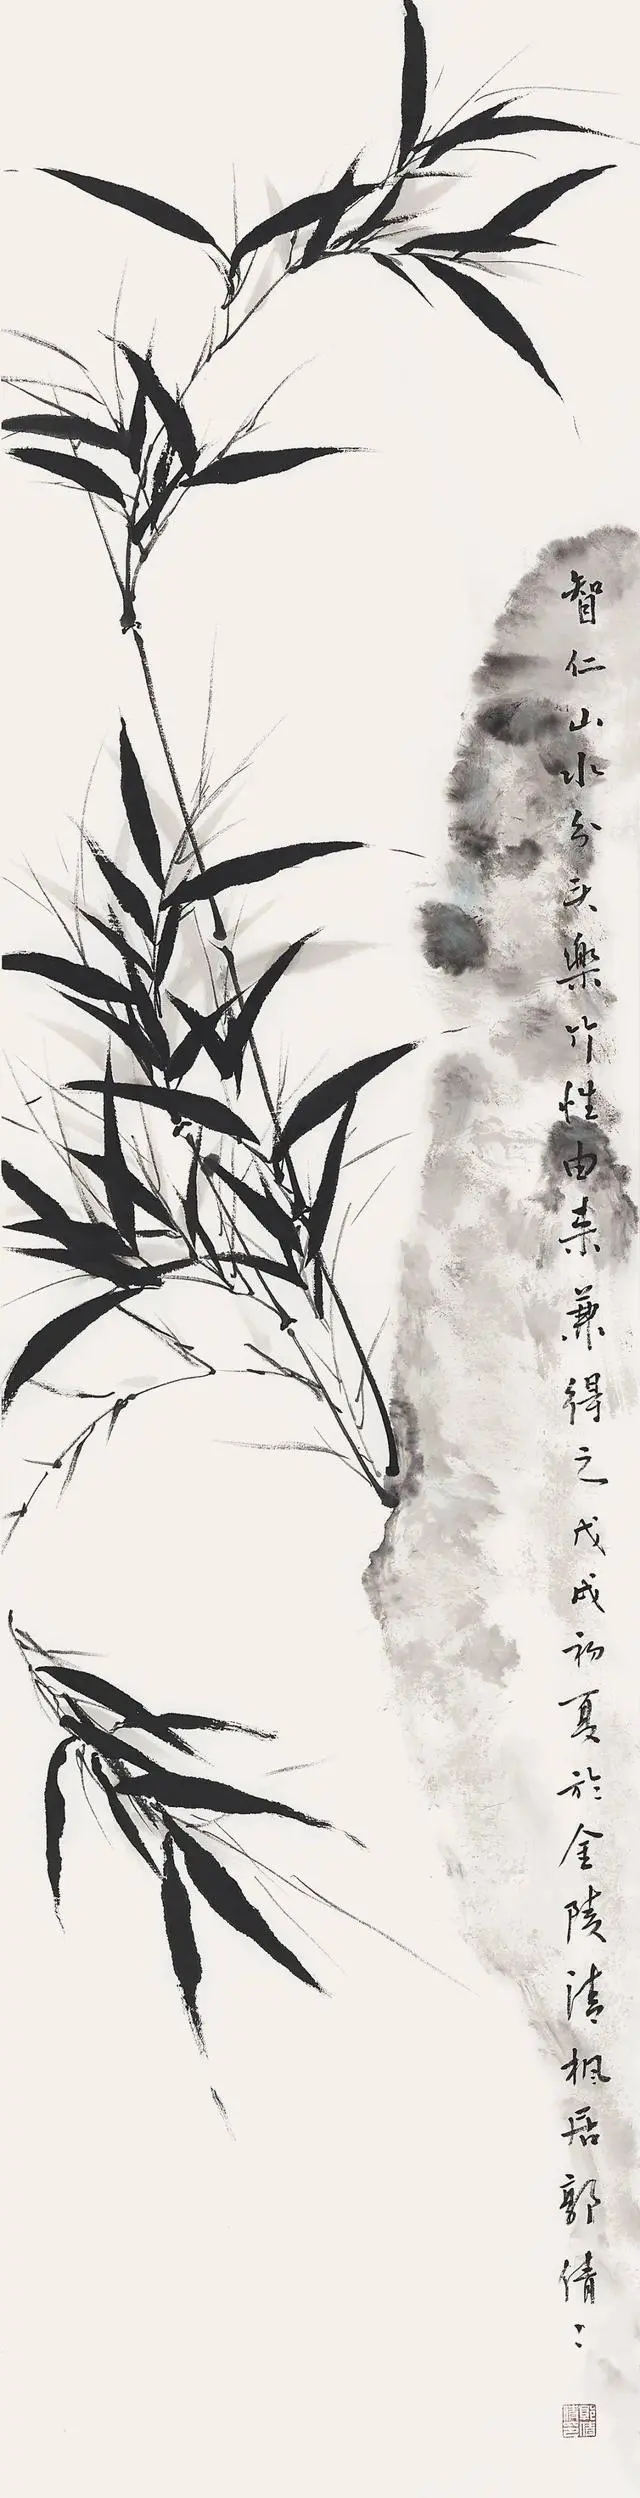 智仁山水分其樂竹性由來兼得之戊戌初夏於金陵清楓居郭倩〻